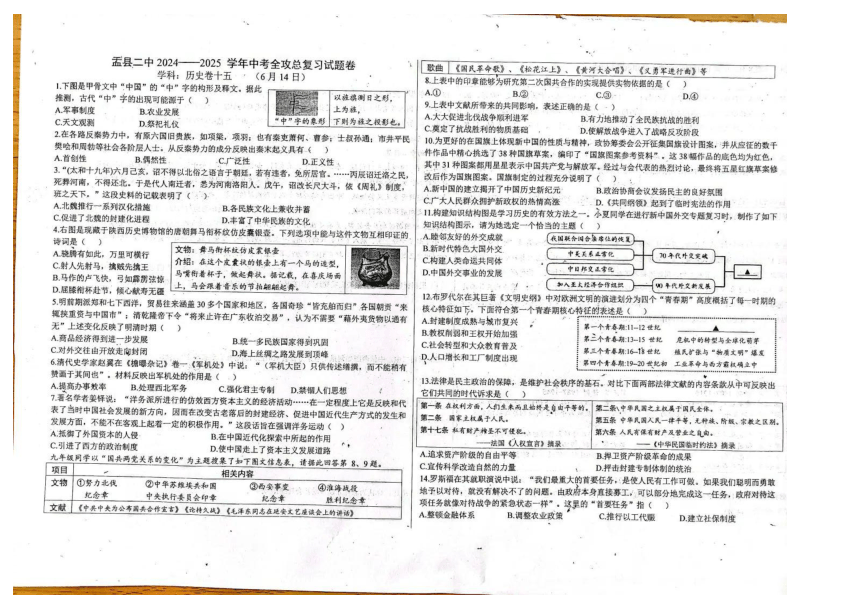 盂县二中 2024——2025 学年中考全攻总复习试题卷
学科：历史卷十五 （6月14日）
1.下图是甲骨文中“中国”的“中”字的构形及释文。据此
推测，古代“中”字的出现可能源于（ ）
A.军事制度 B.农业发展
C.天文观测 D.祭祀礼仪
“中”字的象形
以旌旗测日之形，
上为旌，
下则为旌之投影也。
2.在各路反秦势力中，有原六国旧贵族，如项梁，项羽；也有秦吏萧何、曹参；士叔孙通；市井平民
樊哙和周勃等社会各阶层人士。从反秦势力的成分反映出秦末起义具有（ ）
A.首创性 B.偶然性 C.广泛性 D.正义性
3.“(太和十九年)六月己亥，诏不得以北俗之语言于朝廷，若有违者，免所居官。……丙辰诏迁洛之民，
死葬河南，不得还北。于是代人南迁者，悉为河南洛阳人。戊午，诏改长尺大斗，依《周礼》制度，
班之天下。”这段史料的记载表明了（ ）
A.北魏推行一系列汉化措施 B.各民族文化上兼收并蓄
C.促进了北魏的封建化进程 D.丰富了中华民族的文化
4.右图是现藏于陕西历史博物馆的唐朝舞马衔杯纹仿皮囊银壶。下列选项中能与这件文物互相印证的
诗词是（ ）
A.骁腾有如此，万里可横行
C.射人先射马，擒贼先擒王
B.马作的卢飞快，弓如霹雳弦惊
D.屈膝衔杯赴节，倾心献寿无疆
文物：舞马衔杯纹仿皮囊银壶
介绍：在这个皮囊状的银壶上有一个马的造型，
马嘴衔着杯子，做起舞状。据记载，在喜庆场面
上，马会跟着音乐的节拍翩翩起舞。
5.明前期派郑和七下西洋，贸易往来涵盖 30 多个国家和地区，各国奇珍“皆充舶而归”各国朝贡“来
辄挟重货与中国市”；清乾隆帝下令“将来止许在广东收泊交易”，认为不需要“藉外夷货物以通有
无”上述变化反映了明清时期（ ）
A.商品经济得到进一步发展 B.统一多民族国家得到巩固
C.对外交往由开放走向封闭 D.海上丝绸之路发展到顶峰
6.清代史学家赵翼在《檐曝杂记》卷一《军机处》中说：“（军机大臣）只供传述缮撰，而不能稍有
赞画于其间也”。材料反映出军机处的作用是（ ）
A.提高办事效率 B.处理西北军务 C.强化君主专制 D.禁锢人们思想
7.著名学者姜铎说：“洋务派所进行的仿效西方资本主义的经济活动……在一定程度上它是反映和代
表了当时中国社会发展的新方向，因而在改变古老落后的封建经济、促进中国近代生产方式的发生和
发展方面，不能不在客观上起着一定的积极作用。”这段话旨在强调洋务运动（ ）
A.抵御了外国资本的入侵 B.在中国近代化探索中所起的作用
C.引进了西方的政治制度 D.使中国走上了资本主义发展道路
九年级同学以“国共两党关系的变化”为主题搜集了如下图文信息表，请据此回答第 8、9题。
项目 相关内容
文物 ①努力北伐纪念章 ②中华苏维埃共和国中央执行委员会印章 ③西安事变纪念章 ④淮海战役胜利纪念章
文献 《中共中央为公布国共合作宣言》《论持久战》《毛泽东同志在延安文艺座谈会上的讲话》
歌曲 《国民革命歌》、《松花江上》、《黄河大合唱》、《义勇军进行曲》等
8.上表中的印章能够为研究第二次国共合作的实现提供实物依据的是（ ）
A.① B.② C.③ D.④
9.上表中文献所带来的共同影响，表述正确的是（ ）
A.大大促进北伐战争顺利进军 B.有力地推动了全民族抗战的胜利
C.奠定了抗战胜利的物质基础 D.使解放战争进入了战略反攻阶段
10.为更好的在国旗上体现新中国的性质与精神，政协筹委会公开征集国旗设计图案，并从应征的数千
件作品中精心挑选了 38 种国旗草案，编印了“国旗图案参考资料”。这 38幅作品的底色均为红色，
其中 31 种图案都用星星表示中国共产党与解放军。经过与会代表的热烈讨论，最终将五星红旗草案修
改后作为国旗图案。国旗制定的过程充分说明了（ ）
A.新中国的建立揭开了中国历史新纪元 B.政治协商会议发扬民主的良好氛围
C.广大人民群众拥护新政权的热情高涨 D.《共同纲领》起到了临时宪法的作用
11.构建知识结构图是学习历史的有效方法之一。小夏同学在进行新中国外交专题复习时，制作了如下
知识结构图示，请为她选定一个恰当的主题（ ）
A.睦邻友好的外交成就
B.新时代特色大国外交
C.构建人类命运共同体
D.中国外交事业的发展
我国联合国合法席位的恢复
中美关系正常化
中日邦交正常化
加入亚太经济合作组织
70 年代外交突破
90 年代外交新发展
▲
12.布罗代尔在其巨著《文明史纲》中对欧洲文明的演进划分为四个“青春期”高度概括了每一时期的
核心特征如下。下面符合第一个青春期核心特征的表述是（ ）
A.封建制度成熟与城市复兴
B.教权削弱和王权开始加强
C.社会转型和大众教育普及
D.人口增长和工厂制度出现
第一个青春期:11–12 世纪 ▲
第二个青春期:13–15 世纪 危机中的转型与全球化萌芽
第三个青春期:16–18 世纪 殖民扩张与“物质文明”爆发
第四个青春期:19–20 世纪初 工业革命与西方霸权确立中
13.法律是民主政治的保障，是维护社会秩序的基石。对比下面两部法律文献的内容条款从中可反映出
它们共同的时代诉求是（ ）
第一条 在权利方面，人们生来而且始终是自由平等的。
第三条 国家主权属于人民。
第十七条 私有财产神圣不可侵犯。
——法国《人权宣言》摘录
第二条：中华民国之主权属于国民全体。
第五条 中华民国人民一律平等，无种族、阶级、宗教之区别。
第六条 人民有保有财产及营业之自由。
——《中华民国临时约法》摘录
A.追求资产阶级的自由平等 B.捍卫资产阶级革命的成果
C.宣传科学改造自然的力量 D.抨击封建专制体制的统治
14.罗斯福在其就职演说中说：“我们最重大的首要任务，是使人民有工作可做。如果我们聪明而勇敢
地予以对待，就没有解决不了的问题。由政府本身直接募工，可以部分地完成这一任务，政府对待这
项任务就像对待战争的紧急状态一样”。这里的“首要任务”指（ ）
A.整顿金融体系 B.调整农业政策 C.推行以工代赈 D.建立社保制度